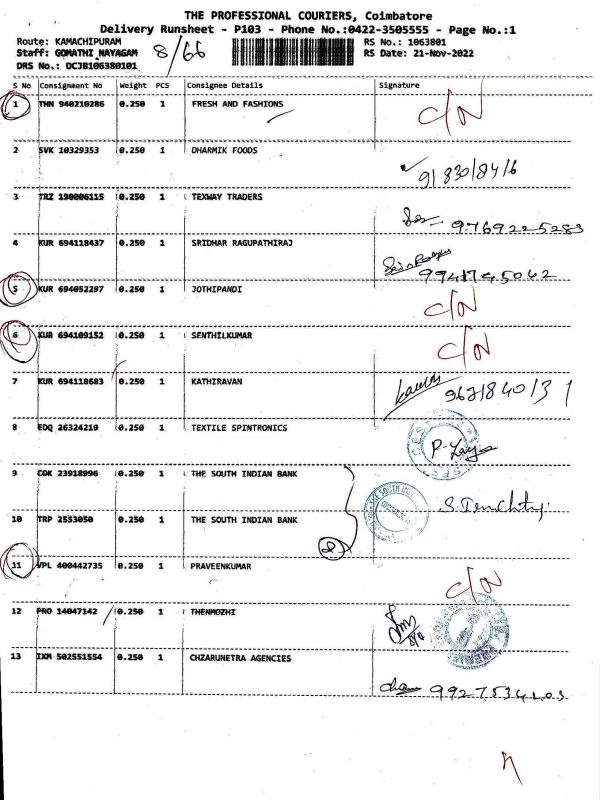 THE PROFESSIONAL COURIERS, Coimbatore
Delivery Runsheet - P103 - Phone No.:0422-3505555 - Page No.:1
Route: KAMACHIPURAM
Staff: GOMATHI NAYAGAM
DRS No.: OCJB106380101
8/66
RS No.: 1063801
RS Date: 21-Nov-2022
S No Consignment No Weight PCS Consignee Details Signature
1 THN 940210286 0.250 1 FRESH AND FASHIONS C/N
2 SVK 10329353 0.250 1 DHARMIK FOODS
3 TRZ 190006115 0.250 1 TEXWAY TRADERS 9769225283
4 KUR 694118437 0.250 1 SRIDHAR RAGUPATHIRAJ
5 KUR 694052297 0.250 1 JOTHIPANDI C/N
6 KUR 694109152 0.250 1 SENTHILKUMAR C/N
7 KUR 694118683 0.250 1 KATHIRAVAN
8 EDQ 26324219 0.250 1 TEXTILE SPINTRONICS
9 COK 23918996 0.250 1 THE SOUTH INDIAN BANK
10 TRP 2553050 0.250 1 THE SOUTH INDIAN BANK
11 VPL 400442735 0.250 1 PRAVEENKUMAR C/N
12 PRO 14047142 0.250 1 THENMOZHI
13 IXM 502551554 0.250 1 CHZARUNETRA AGENCIES